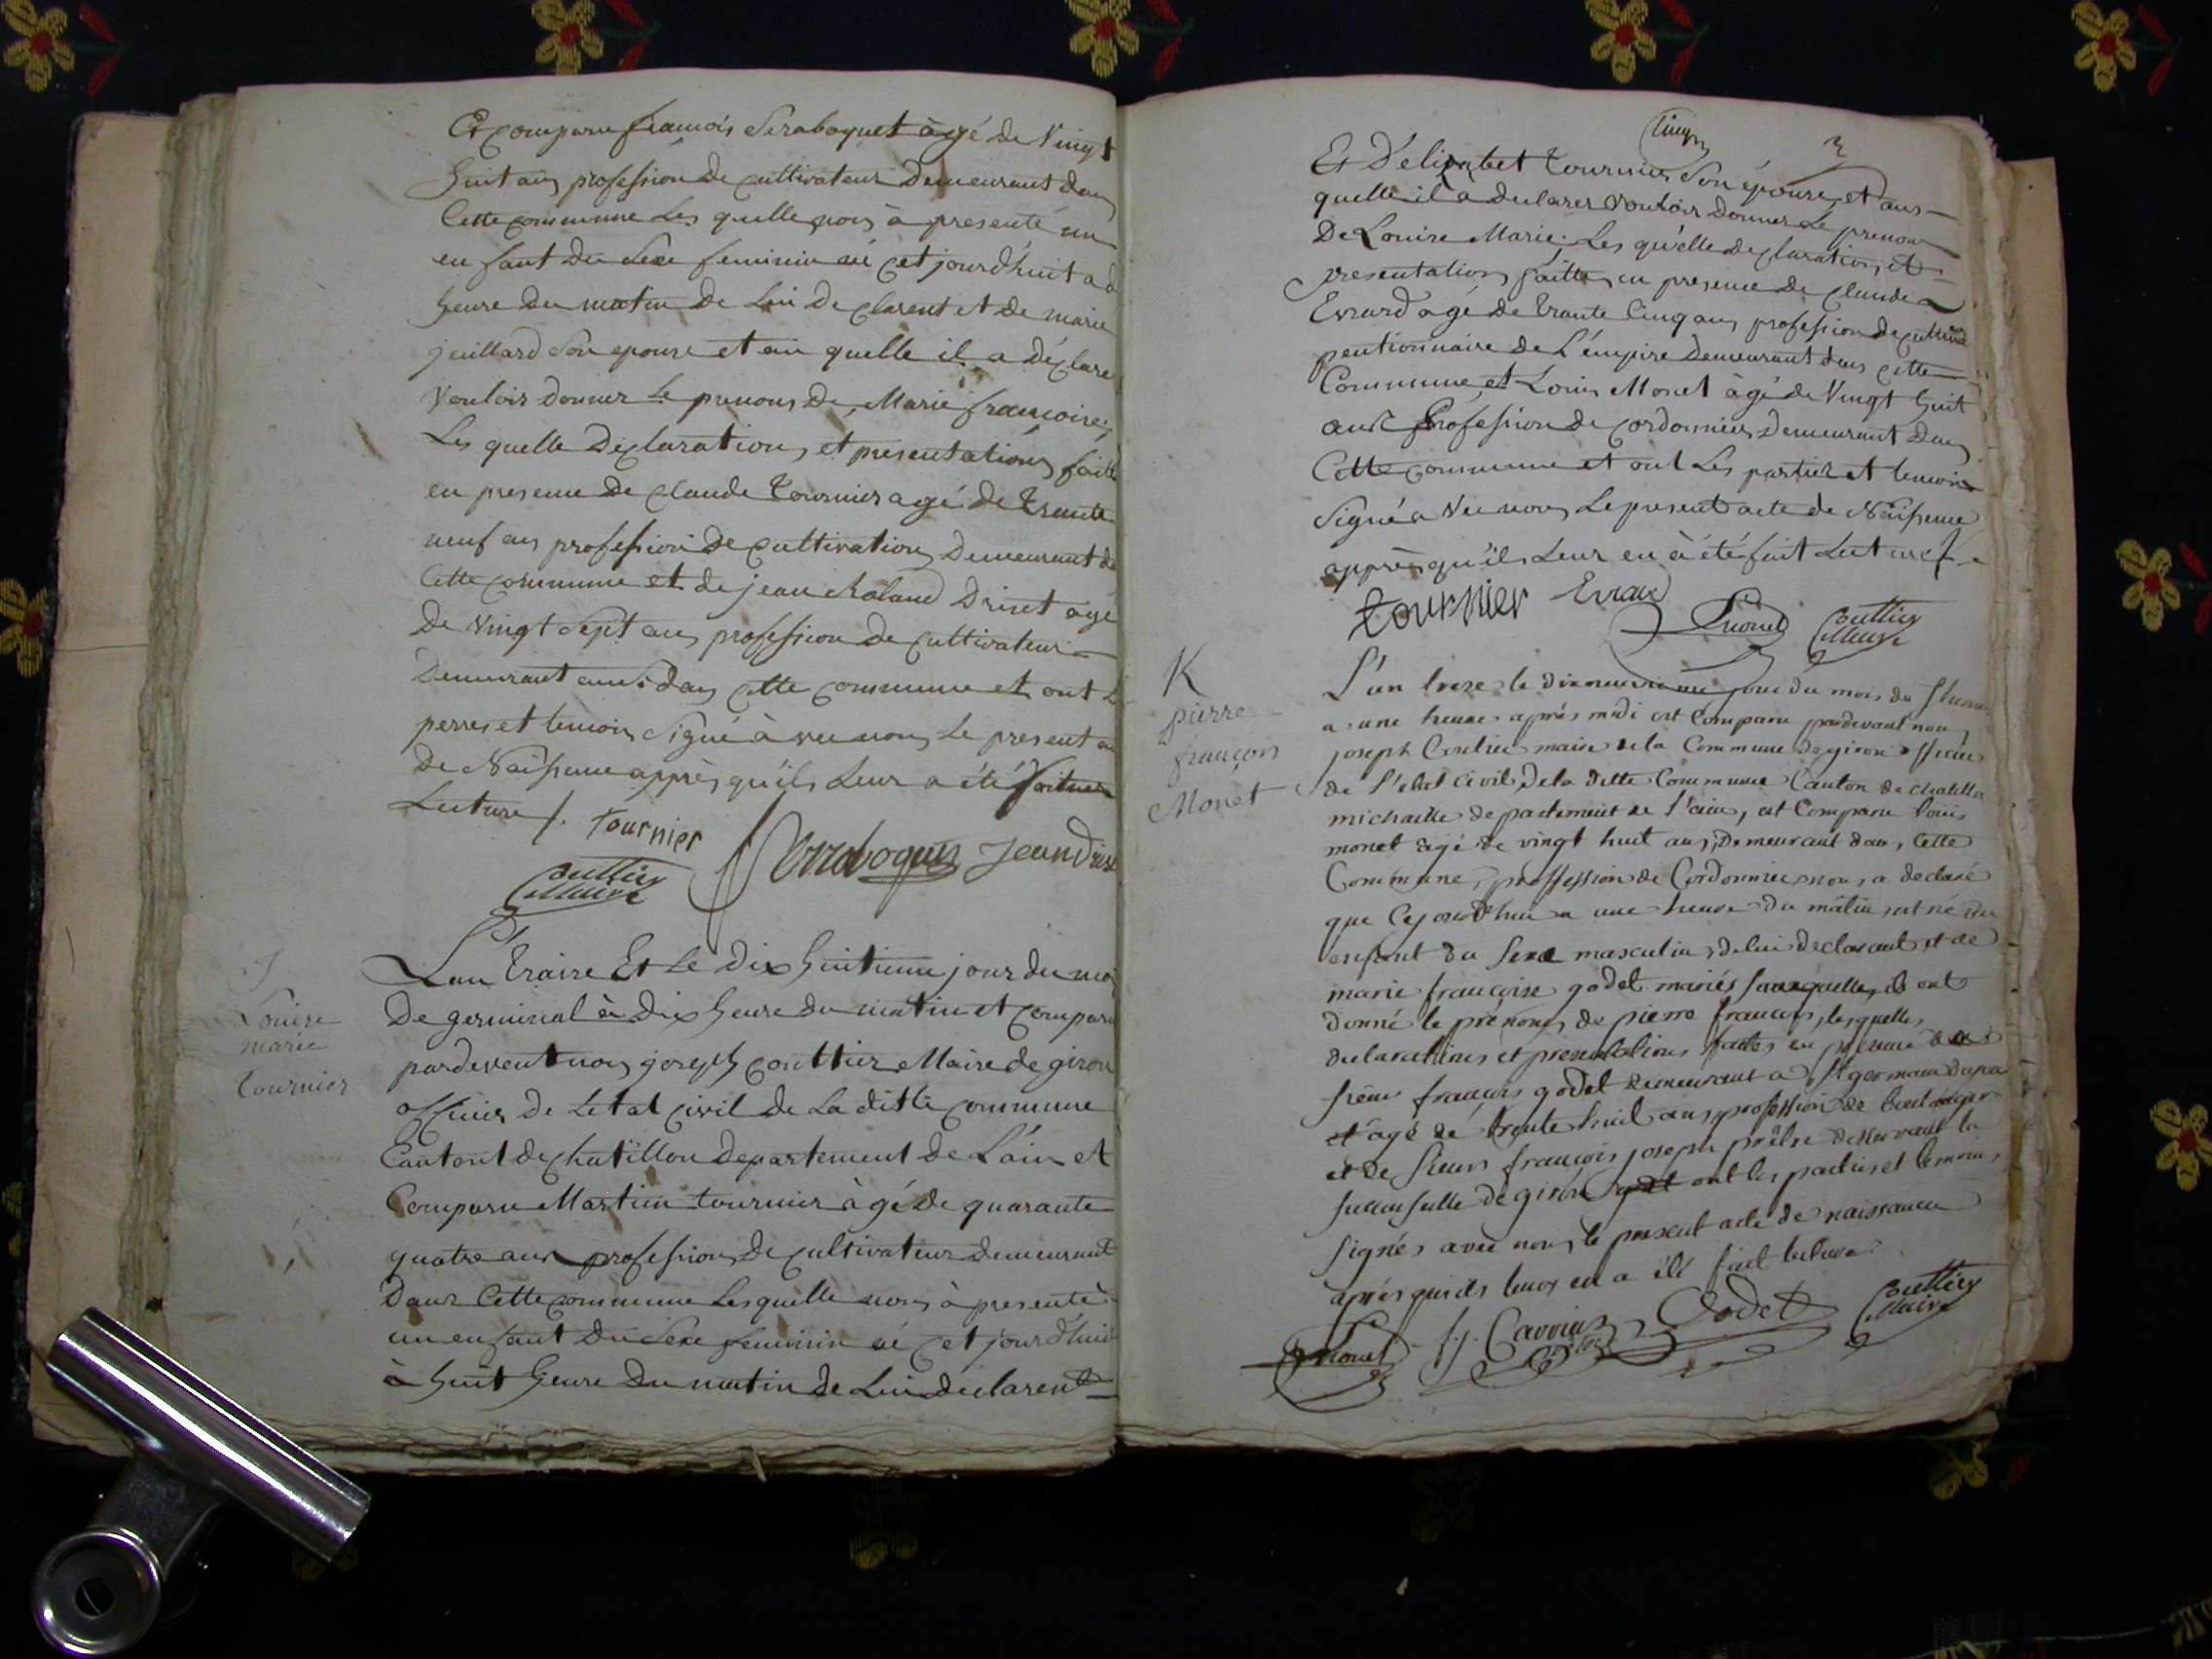 Et comparu francois Seraboquet àgé de Vingt
huit ans profession de cultivateur Demeurant dans
Cette commune Les quelle nous à presenté un
en fant du Sexe feminin né cet jourd'huit a
heure du matin de Lui De clarent et de marie
juillard Son epouse et au quelle il a déclare
Vouloir donner Le prenons De, Marie francoise,
Les quelle Declaration, et presentations faitte
en presence De Claude Tournier agé de trante
neuf ans profession De Cultivation, Demeurant de
Cette commune et de jean Roland Drinet agé
De Vingt Sept ans profession de cultivateur
Demeurant aussi dans cette commune et ont
perres et temoin Signé à vec nous Le present
De Naissance apprès qu'ils Leur a été fait
Lecture /. Tournier Serraboques Jean
Couttier
Maire
J
Louise
marie
tournier
L'an Traize Et Le Dix huitieme jour du
De germinal à Dix heure du matin et comparu
pardevent nous joseph couttier Maire de giron
officier De Letat civil de La ditte commune
Cantont de chatillon Departement de L'ain et
Comparu Martin tournier à gé de quarante
quatre ans profession, De cultivateur demeurant
Dans Cette commune Les quelle nous à presenté
un enfant Du Sexe feminin né cet jourd'huit
à huit heure Du matin de Lui declarent
Cinq
3
Et D'elisabet Tournier Son épouse, et aus
quelle il a declarer vouloir donner Le prenom
De Louise Marie. Les qu'elle declaration, et
presentation, faitte, en presence de Claude
Evrard agé de trante Cinq ans profession de
pentionnaire de L'émpire Demeurant dans cette
Commune, et Louis Monet àgé de Vingt huit
ans Profession de cordonnier Demeurant dans
Cette commune et ont Les partiez et temoin
Signé a Vec nous Le present acte de Naissence
apprès qu'ils Leur en à été fait Lecture /.
tournier Evrard Monet Couttier
Maire
K
pierre
francois
Monet
L'an treze le dixneuvieme jour du mois de
a une heure après midi est Comparu pardevant nous
joseph Coutier maire de la Commune de giron officier
de l'etat civil, De la ditte Commune Canton de chatillon
michaille departement de l'ain, est Comparu louis
monet agé de vingt huit ans, Demeurant dans Cette
Commune, proffession de Cordonnier, nous a declaré
que Cejourd'hui a une heure du matin est né un
enfant du sexe masculin, de lui declarant et de
marie francoise godet mariés auxquelle, ils ont
donné le prénoms de pierre francois, lesquelles,
declarations et presentations faites en presence de
sieur francois godet demeurant a St germain
et agé de trente huit ans, profession de
et de sieur francois joseph prêtre desservant la
succursalle de giron ont les parties et temoins
signés avec nous le present acte de naissance
après qu'ils leurs en a été fait lecture.
Monet f. j. Godet Couttier
Maire